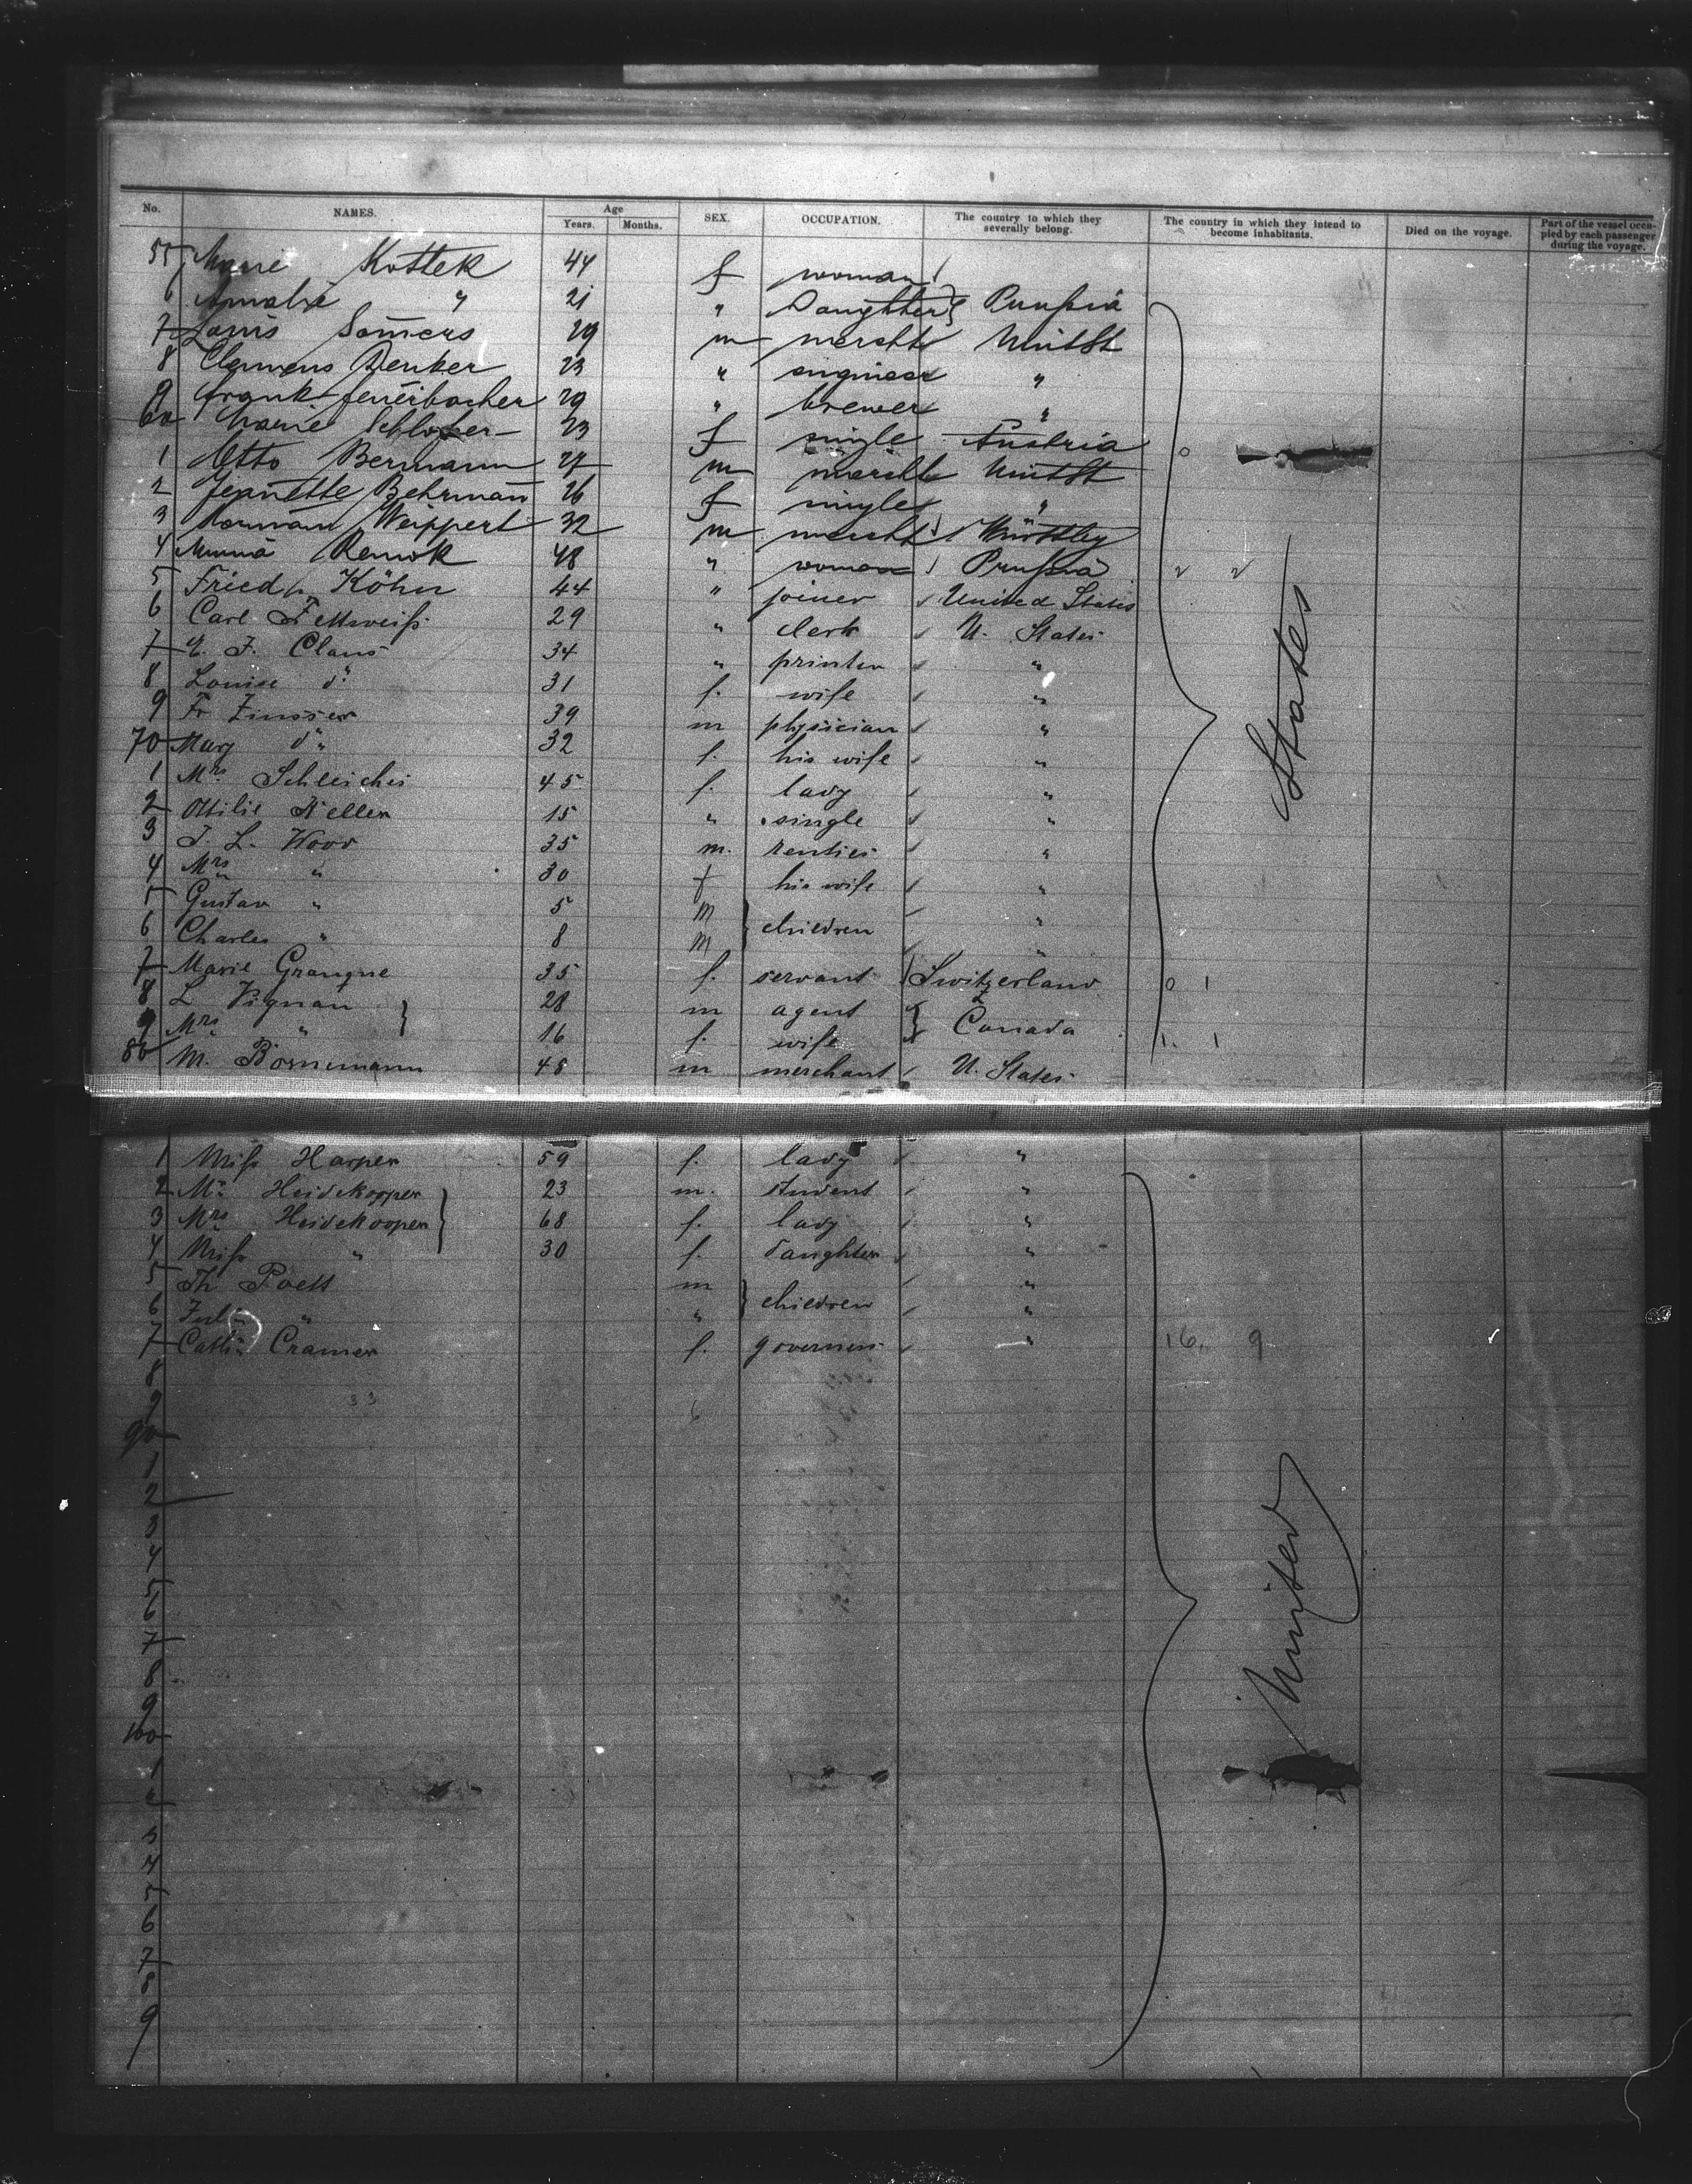 No. NAMES. Age Years. Months. SEX. OCCUPATION. The country to which they severally belong. The country in which they intend to become inhabitants. Died on the voyage. Part of the vessel occupied by each passenger during the voyage.
55 Marie Kottek 44 f woman
6 Amalie " 21 " Daughter } Prussia
7 Louis Somers 29 m mercht UnitSt
8 Clemens Denker 23 " engineer "
9 Frank Feuerbacher 29 " brewer "
60 Marie Schlosser 23 f single Austria 0
1 Otto Bermann 27 m mercht UnitSt
2 Jeanette Behrman 26 f single "
3 Hermann Weippert 32 m mercht Württbg
4 Minna 48 " woman Prussia 2 2
5 Friedr. Köhn 44 " joiner United States
6 Carl Fettweiss 29 " clerk U. States
7 E. F. Claus 34 " printer "
8 Louise do 31 f. wife "
9 Fr Zinsser 39 m physician "
70 Mary do 32 f. his wife "
1 Mrs Schleicher 45 f. lady "
2 Ottilie Keller 15 " single "
3 J. L. Wood 35 m. rentier "
4 Mrs " 30 f his wife "
5 Gustav " 5 m } children "
6 Charles " 8 m "
7 Marie Grangne 35 f. servant Switzerland 0 1
8 L Vignan } 28 m agent } Canada
9 Mrs " 16 f. wife 1. 1
80 M. Bornemann 48 m merchant U. States
States
1 Miss Harper 59 f. lady "
2 Mr Heidekopper } 23 m. student "
3 Mrs Heidekooper 68 f. lady "
4 Miss " 30 f. daughter "
5 Th Poett m } children "
6 " " "
7 Cathr. Cramer f. governess " 16. 9
8
9 33 6
90
1
2
3
4
5
6
7
8
9
100
United
1
2
3
4
5
6
7
8
9